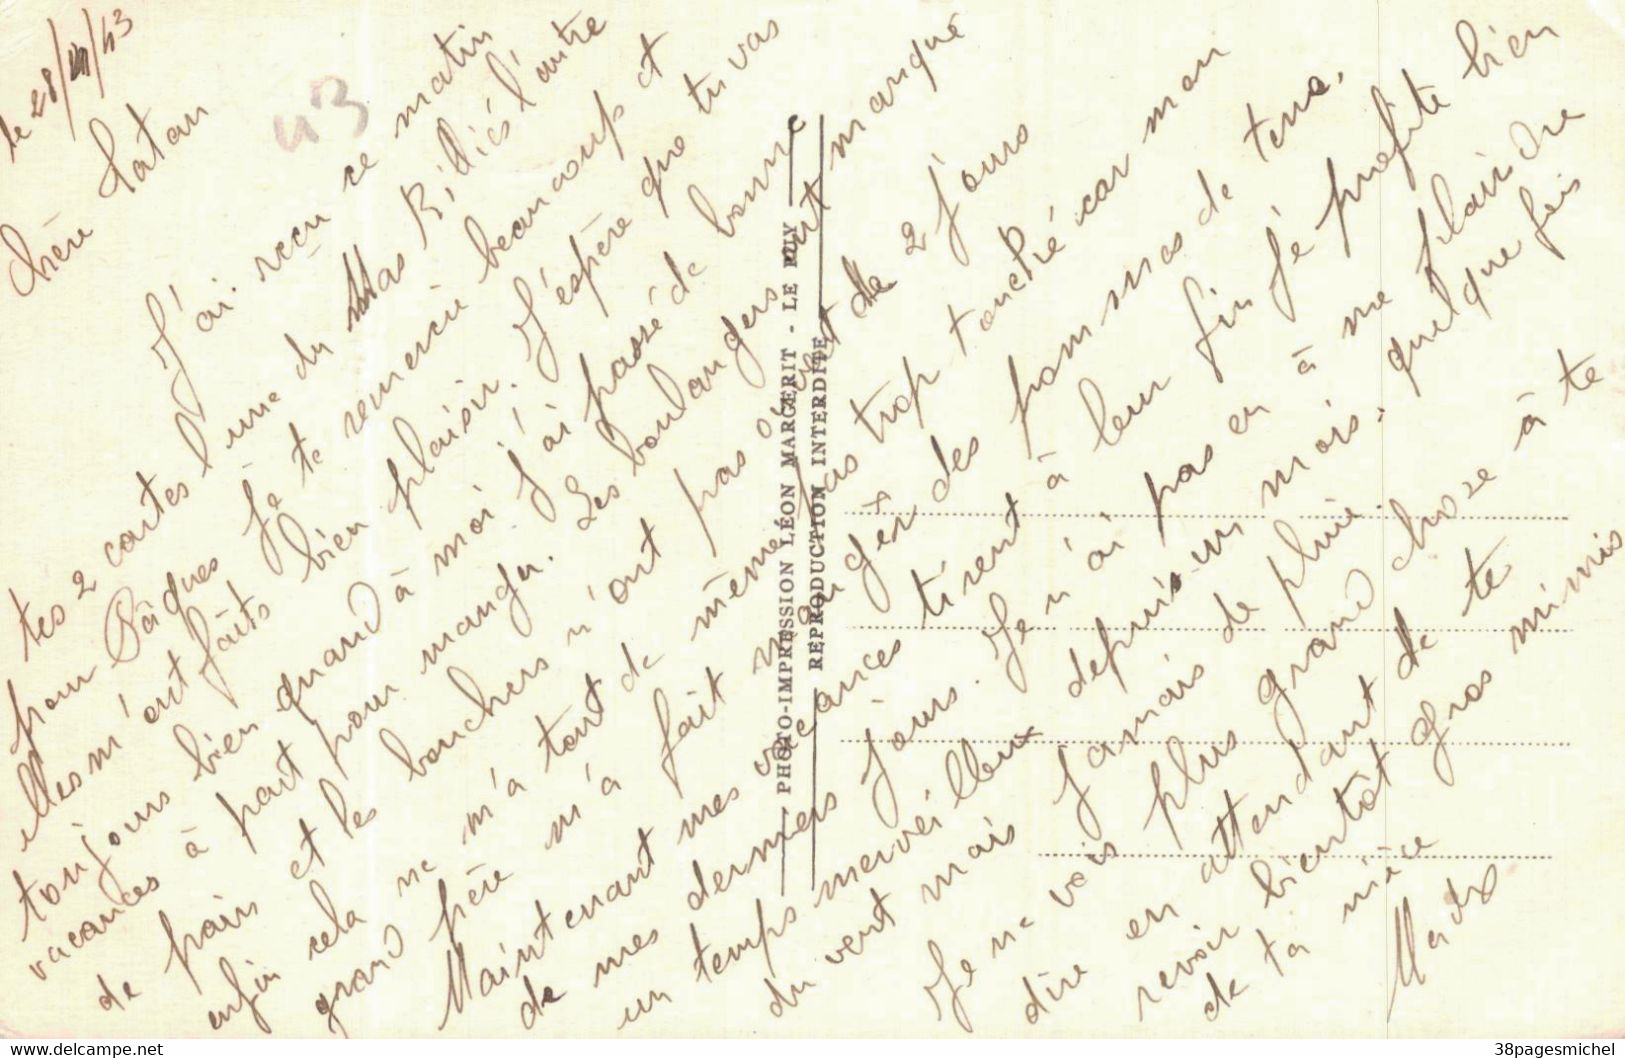 le 28/VII/43
43
Chère Tatan
J'ai reçu ce matin
tes 2 cartes l'une du Mas Rilier l'autre
pour Pâques Je te remercie beaucoup et
elles m'ont faits bien plaisir. J'espère que tu vas
toujours bien quand à moi j'ai passé de bonne
vacances à part pour manger. Les boulangers ont manqué
de pain et les bouchers n'ont pas de 2 jours
enfin cela ne m'a tout de même pas trop touché car mon
grand père m'a fait manger des pommes de terre.
Maintenant mes vacances tirent à leur fin Je profite bien
de mes derniers jours. Je n'ai pas eu à me plaindre
un temps merveilleux depuis un mois. quelque fois
du vent mais jamais de pluie.
Je ne vois plus grand chose à te
dire en attendant de te
revoir bientôt gros mimis
de ta nièce
PHOTO-IMPRESSION LÉON MARGERIT - LE PUY
REPRODUCTION INTERDITE
38pagesmichel
delcampe.net